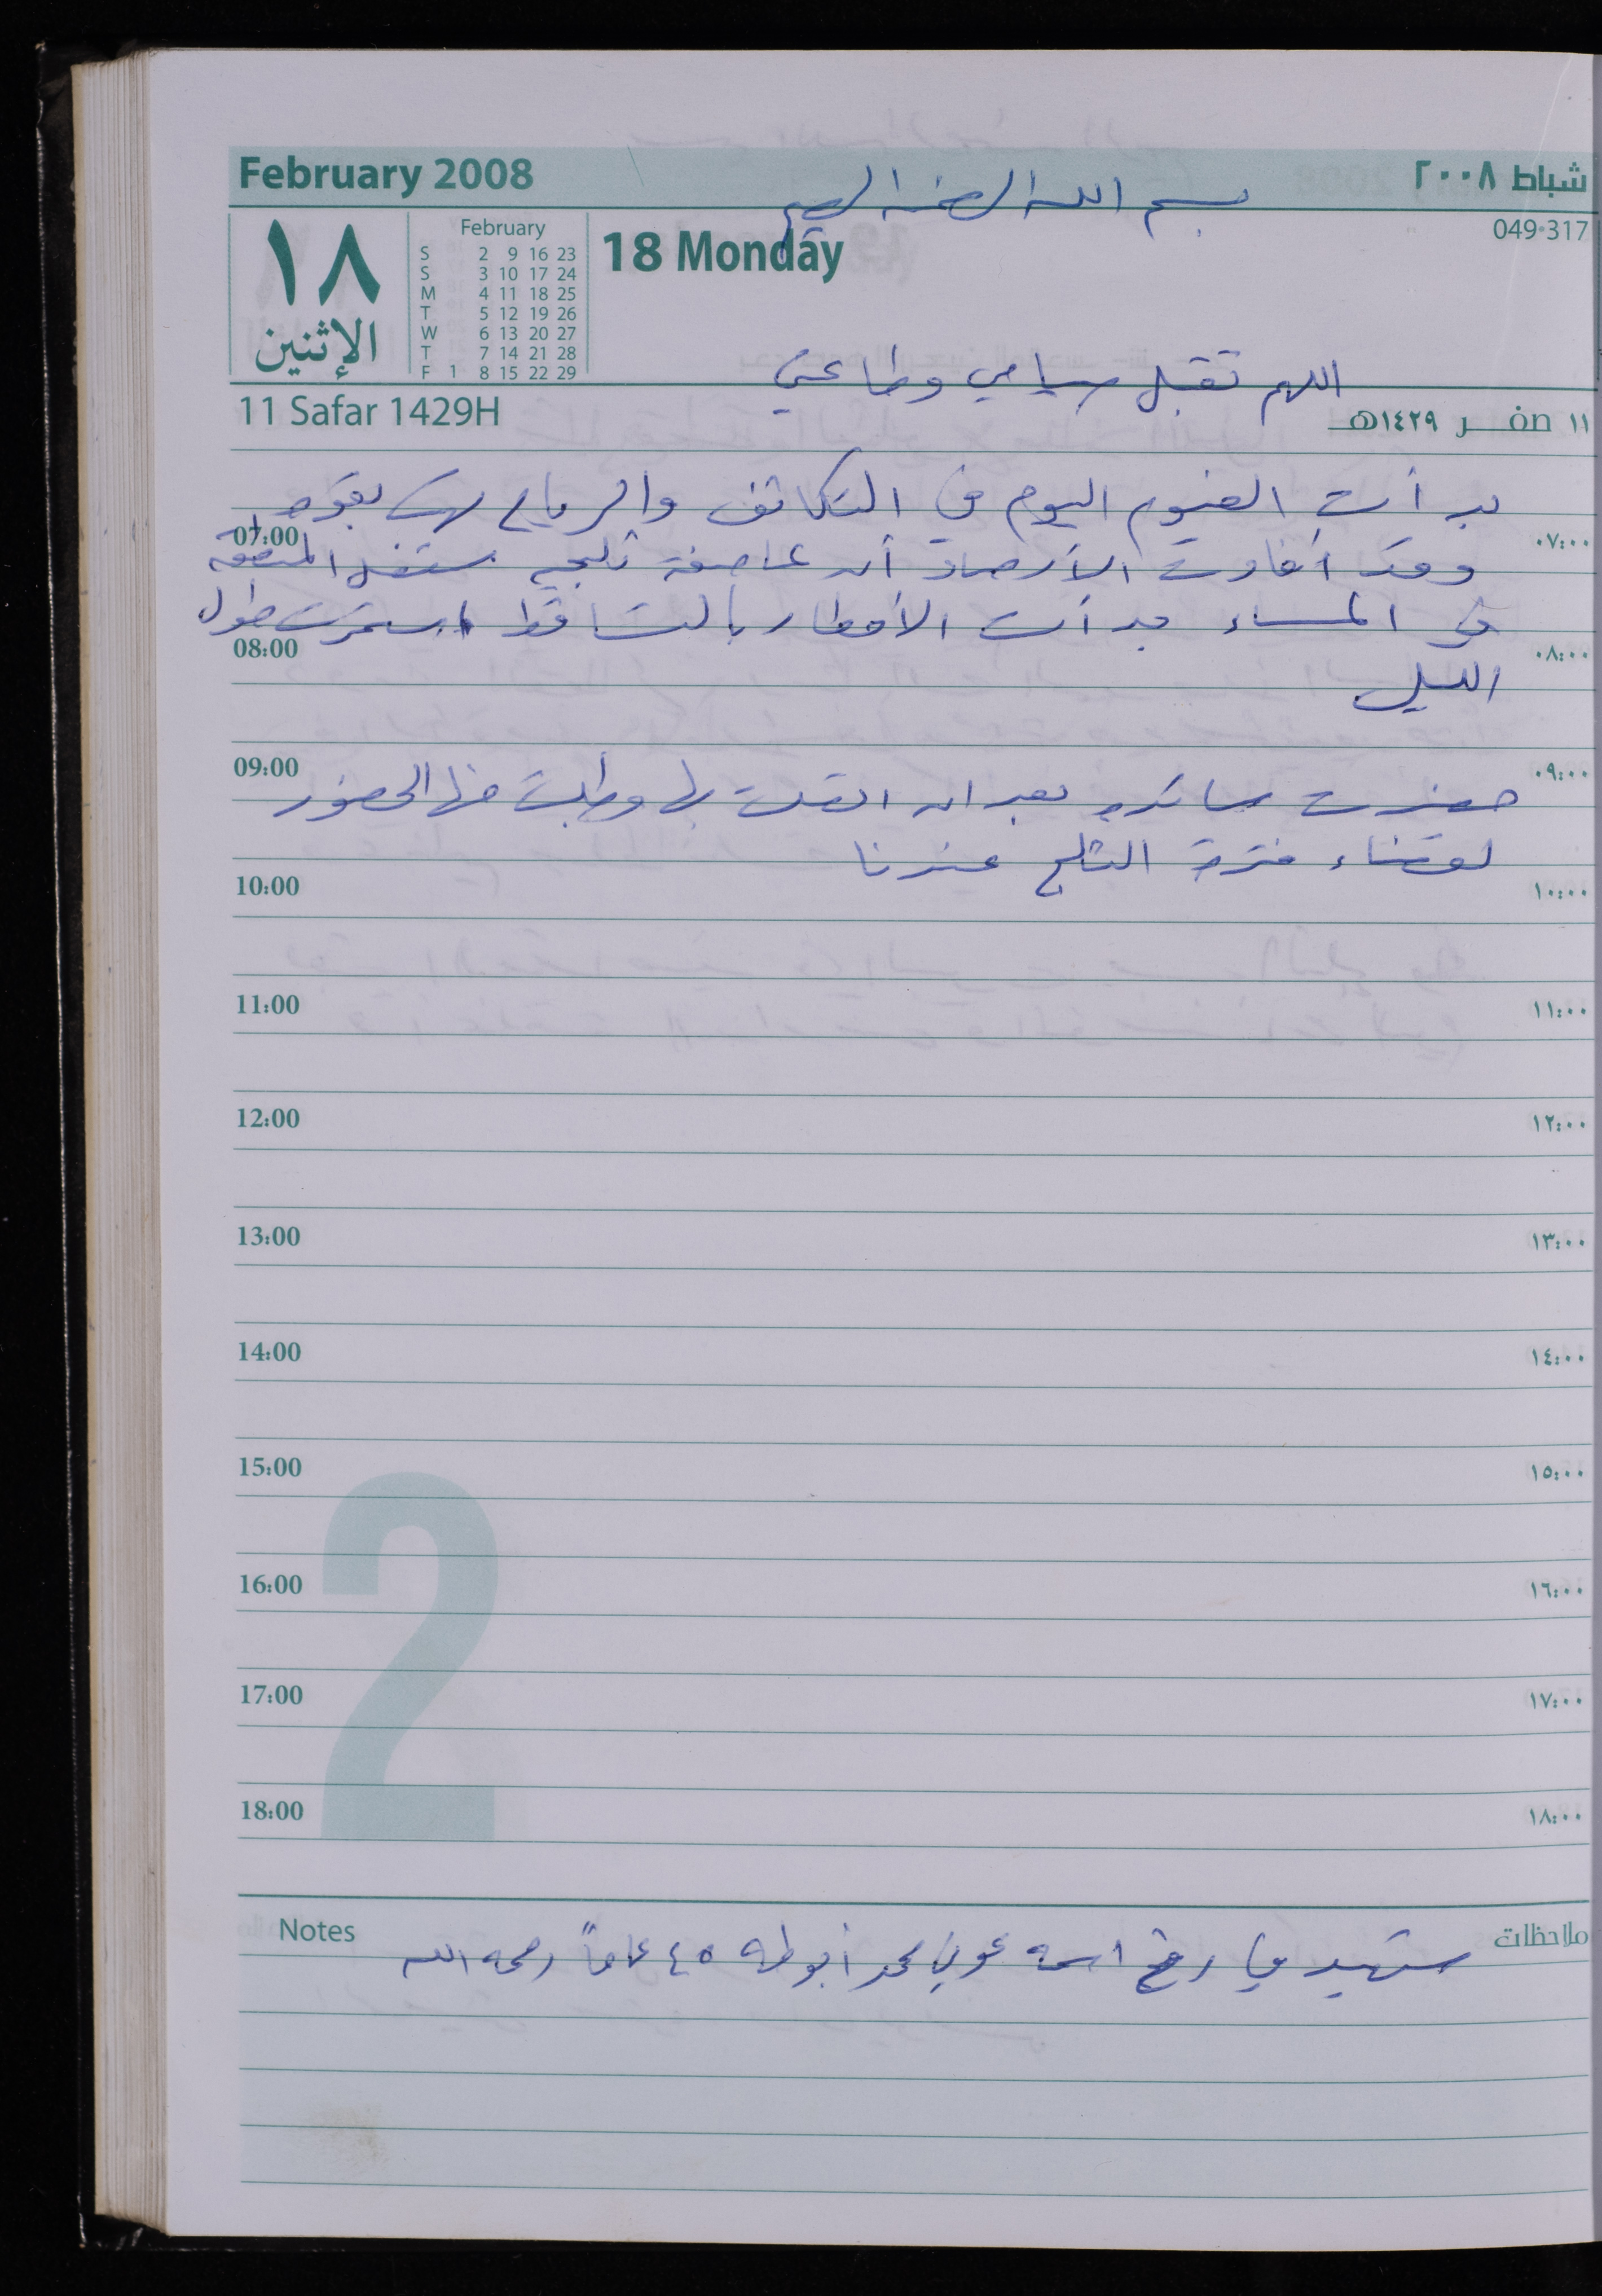 February 2008
شباط ٢٠٠٨
بسم الله الرحمن الرحيم
١٨
الإثنين
February
S 2 9 16 23
S 3 10 17 24
M 4 11 18 25
T 5 12 19 26
W 6 13 20 27
T 7 14 21 28
F 1 8 15 22 29
18 Monday
049-317
اللهم تقبل صيامي وطاعتي
11 Safar 1429H
١١ صفر ١٤٢٩هـ
بدأت الغيوم اليوم في التكاثف والرياح تهب بقوة
07:00 ٠٧:٠٠
وقد أفادت الأرصاد أن عاصفة ثلجية ستصل المنطقة
في المساء بدأت الأمطار بالتساقط واستمرت طول
08:00 ٠٨:٠٠
الليل
09:00 ٠٩:٠٠
حضرت بعد ان اتصلت بها وطلبت منها الحضور
لقضاء فترة الثلج عندنا
10:00 ١٠:٠٠
11:00 ١١:٠٠
12:00 ١٢:٠٠
13:00 ١٣:٠٠
14:00 ١٤:٠٠
15:00 ١٥:٠٠
16:00 ١٦:٠٠
17:00 ١٧:٠٠
18:00 ١٨:٠٠
2
Notes
ملاحظات
شهيد في رفح اسمه محمد أبو طه ٤٥ عاماً رحمه الله